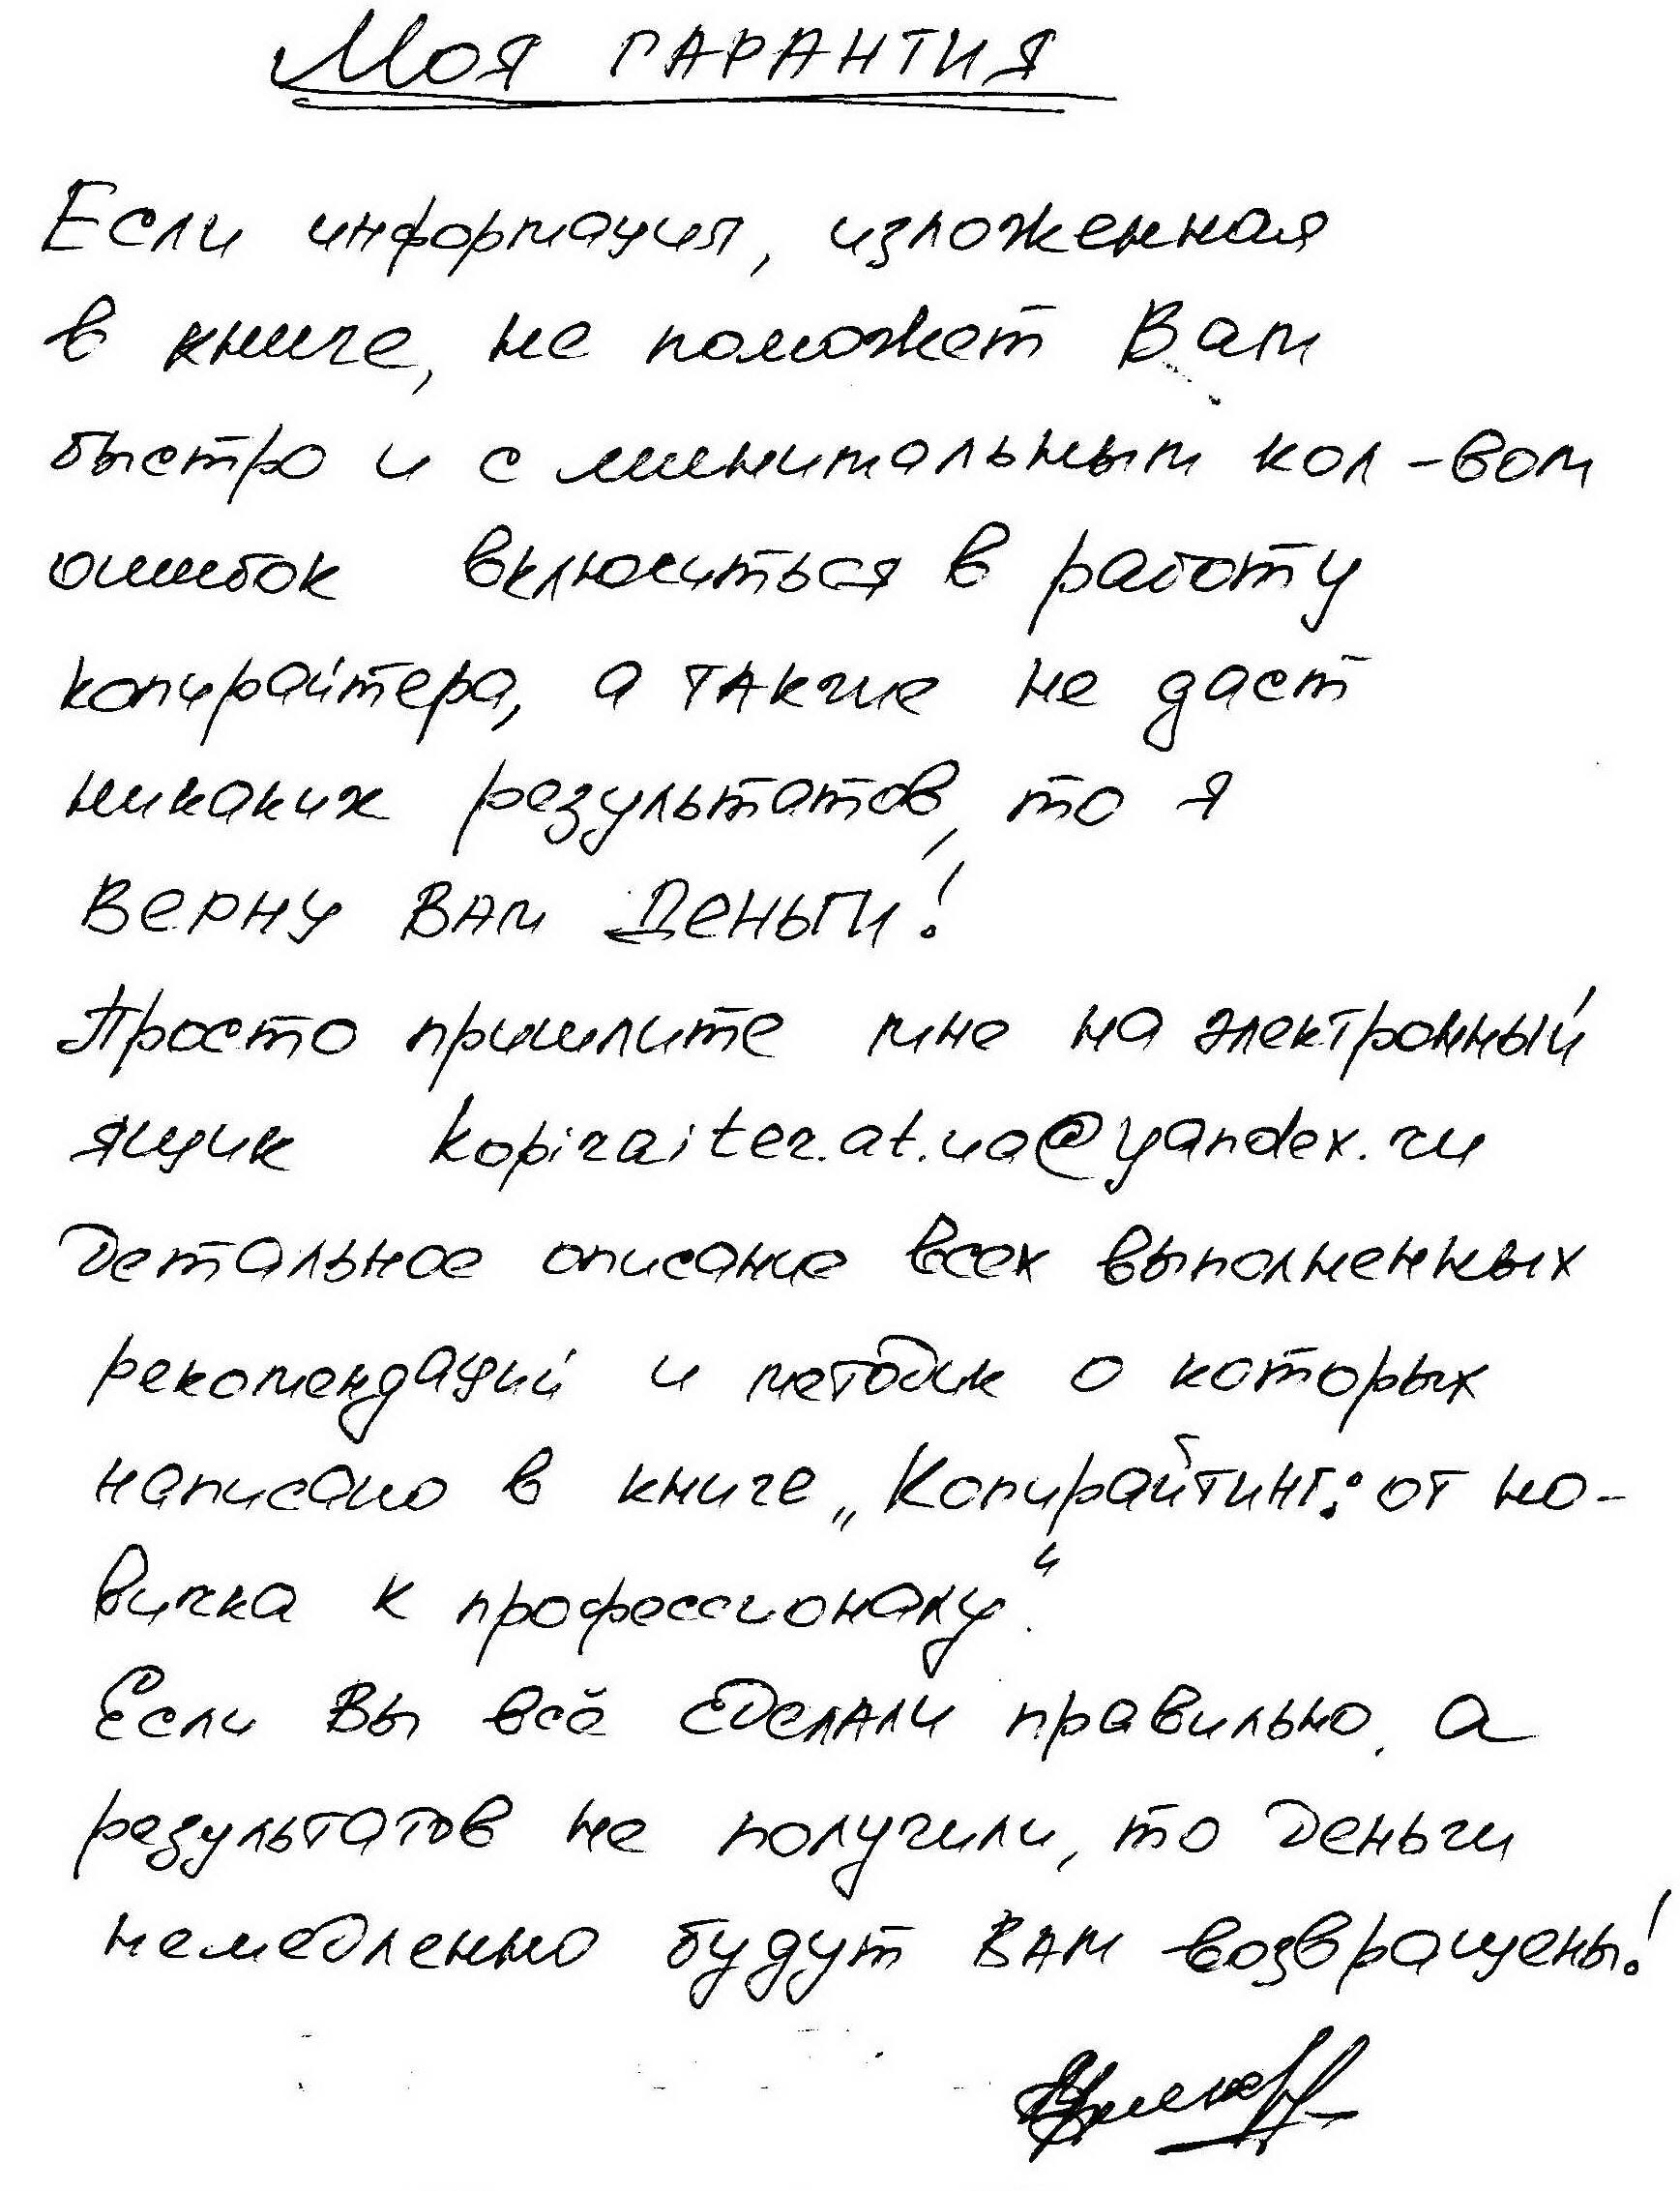 Моя ГАРАНТИЯ
Если информация, изложенная
в книге, не поможет Вам
быстро и с минимальным кол-вом
ошибок включиться в работу
копирайтера, а также не даст
никаких результатов, то я
Верну Вам Деньги!
Просто пришлите мне на электронный
ящик kopiraiter.at.ua@yandex.ru
детальное описание всех выполненных
рекомендаций и методик о которых
написано в книге „Копирайтинг: от но-
вичка к профессионалу“.
Если Вы всё сделали правильно, а
результатов не получили, то деньги
немедленно будут Вам возвращены!